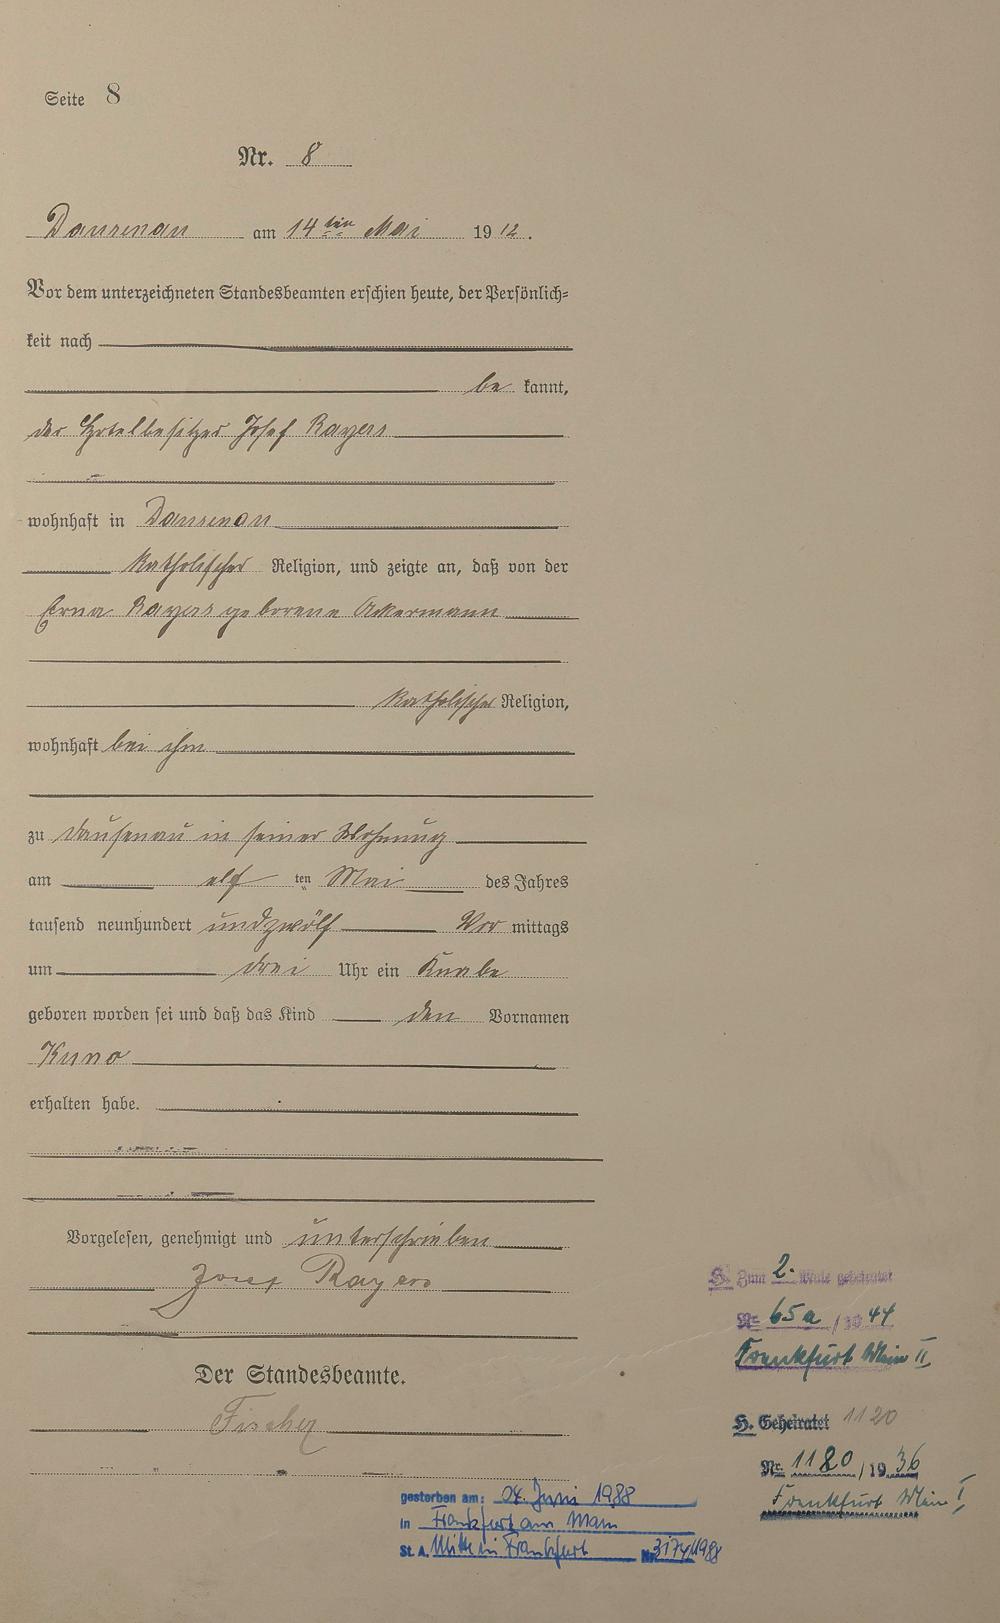 Seite 8
Nr. 8
Dausenau am 14ten Mai 1912.
Vor dem unterzeichneten Standesbeamten erschien heute, der Persönlich=
keit nach
be kannt,
der Hotelbesitzer Josef Rayers
wohnhaft in Dausenau
katholischer Religion, und zeigte an, daß von der
Erna Rayers geborene Ackermann
katholischer Religion,
wohnhaft bei ihm
zu Dausenau in seiner Wohnung
am elf ten Mai des Jahres
tausend neunhundert undzwölf Vor mittags
um drei Uhr ein Knabe
geboren worden sei und daß das Kind den Vornamen
Kuno
erhalten habe.
Vorgelesen, genehmigt und unterschrieben
Josef Rayers
Der Standesbeamte.
Fischer
H. Zum 2. Male geheiratet
Nr. 65a/1944
Frankfurt Main II
H. Geheiratet 1120
Nr. 1180/1936
Frankfurt Main I
gestorben am: 04. Juni 1988
in Frankfurt am Main
St. A. Mitte in Frankfurt Nr. 3174/1988